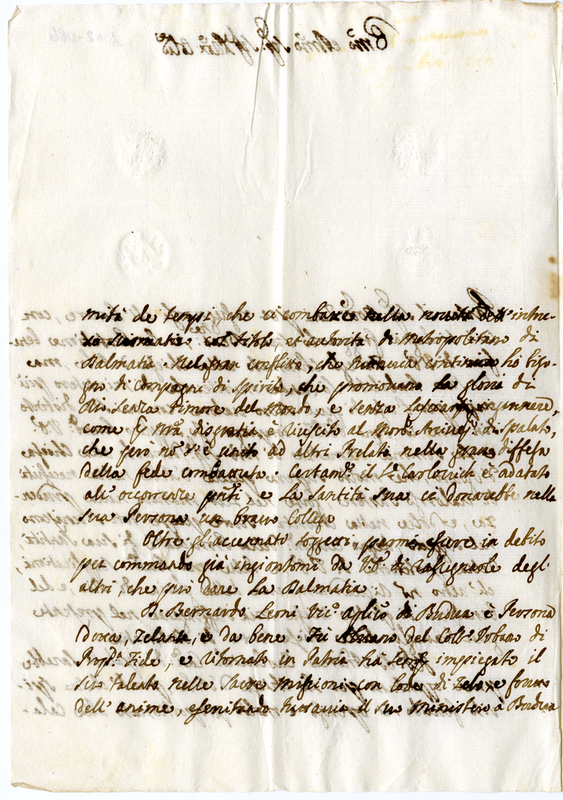 mità de tempi, che ci combatte nella novità dell' intru-
so Scismatico col titolo, et autorità di Metropolitano di
Dalmatia. Nel gran conflitto, che tuttavia continua ho biso-
gno di Compagni di Spirito, che promovano la gloria di
Dio senza timore del Mondo, e senza lasciarsi ingannare,
come p nrã disgratia è riuscito al Morto Arcivесо di Spalato,
che però nõ s'è unito ad altri Prelati nella gran diffesa
della fede combattuta. Certamte il Sr Carlovich è adatato
alle occorrenze pñti, e La Santità Sua ci donarebbe nella
sua Persona un bravo Collega
Oltre gl'accennati soggetti, parmi essere in debito
per commando già ingiontomi da di rassegnarle degl'
altri, che può dare La Dalmatia.
D. Bernardo Leoni Vico Aplico di Budua è Persona
Dotta, Zelante, e da bene. Fu Alunno del Collo Urbano di
Propda Fide, e ritornato in Patria ha sempre impiegato il
suo talento nelle Sacre missioni con lode di zelo, e frutto
dell' anime, esercitando tuttavia il suo ministero à Budua